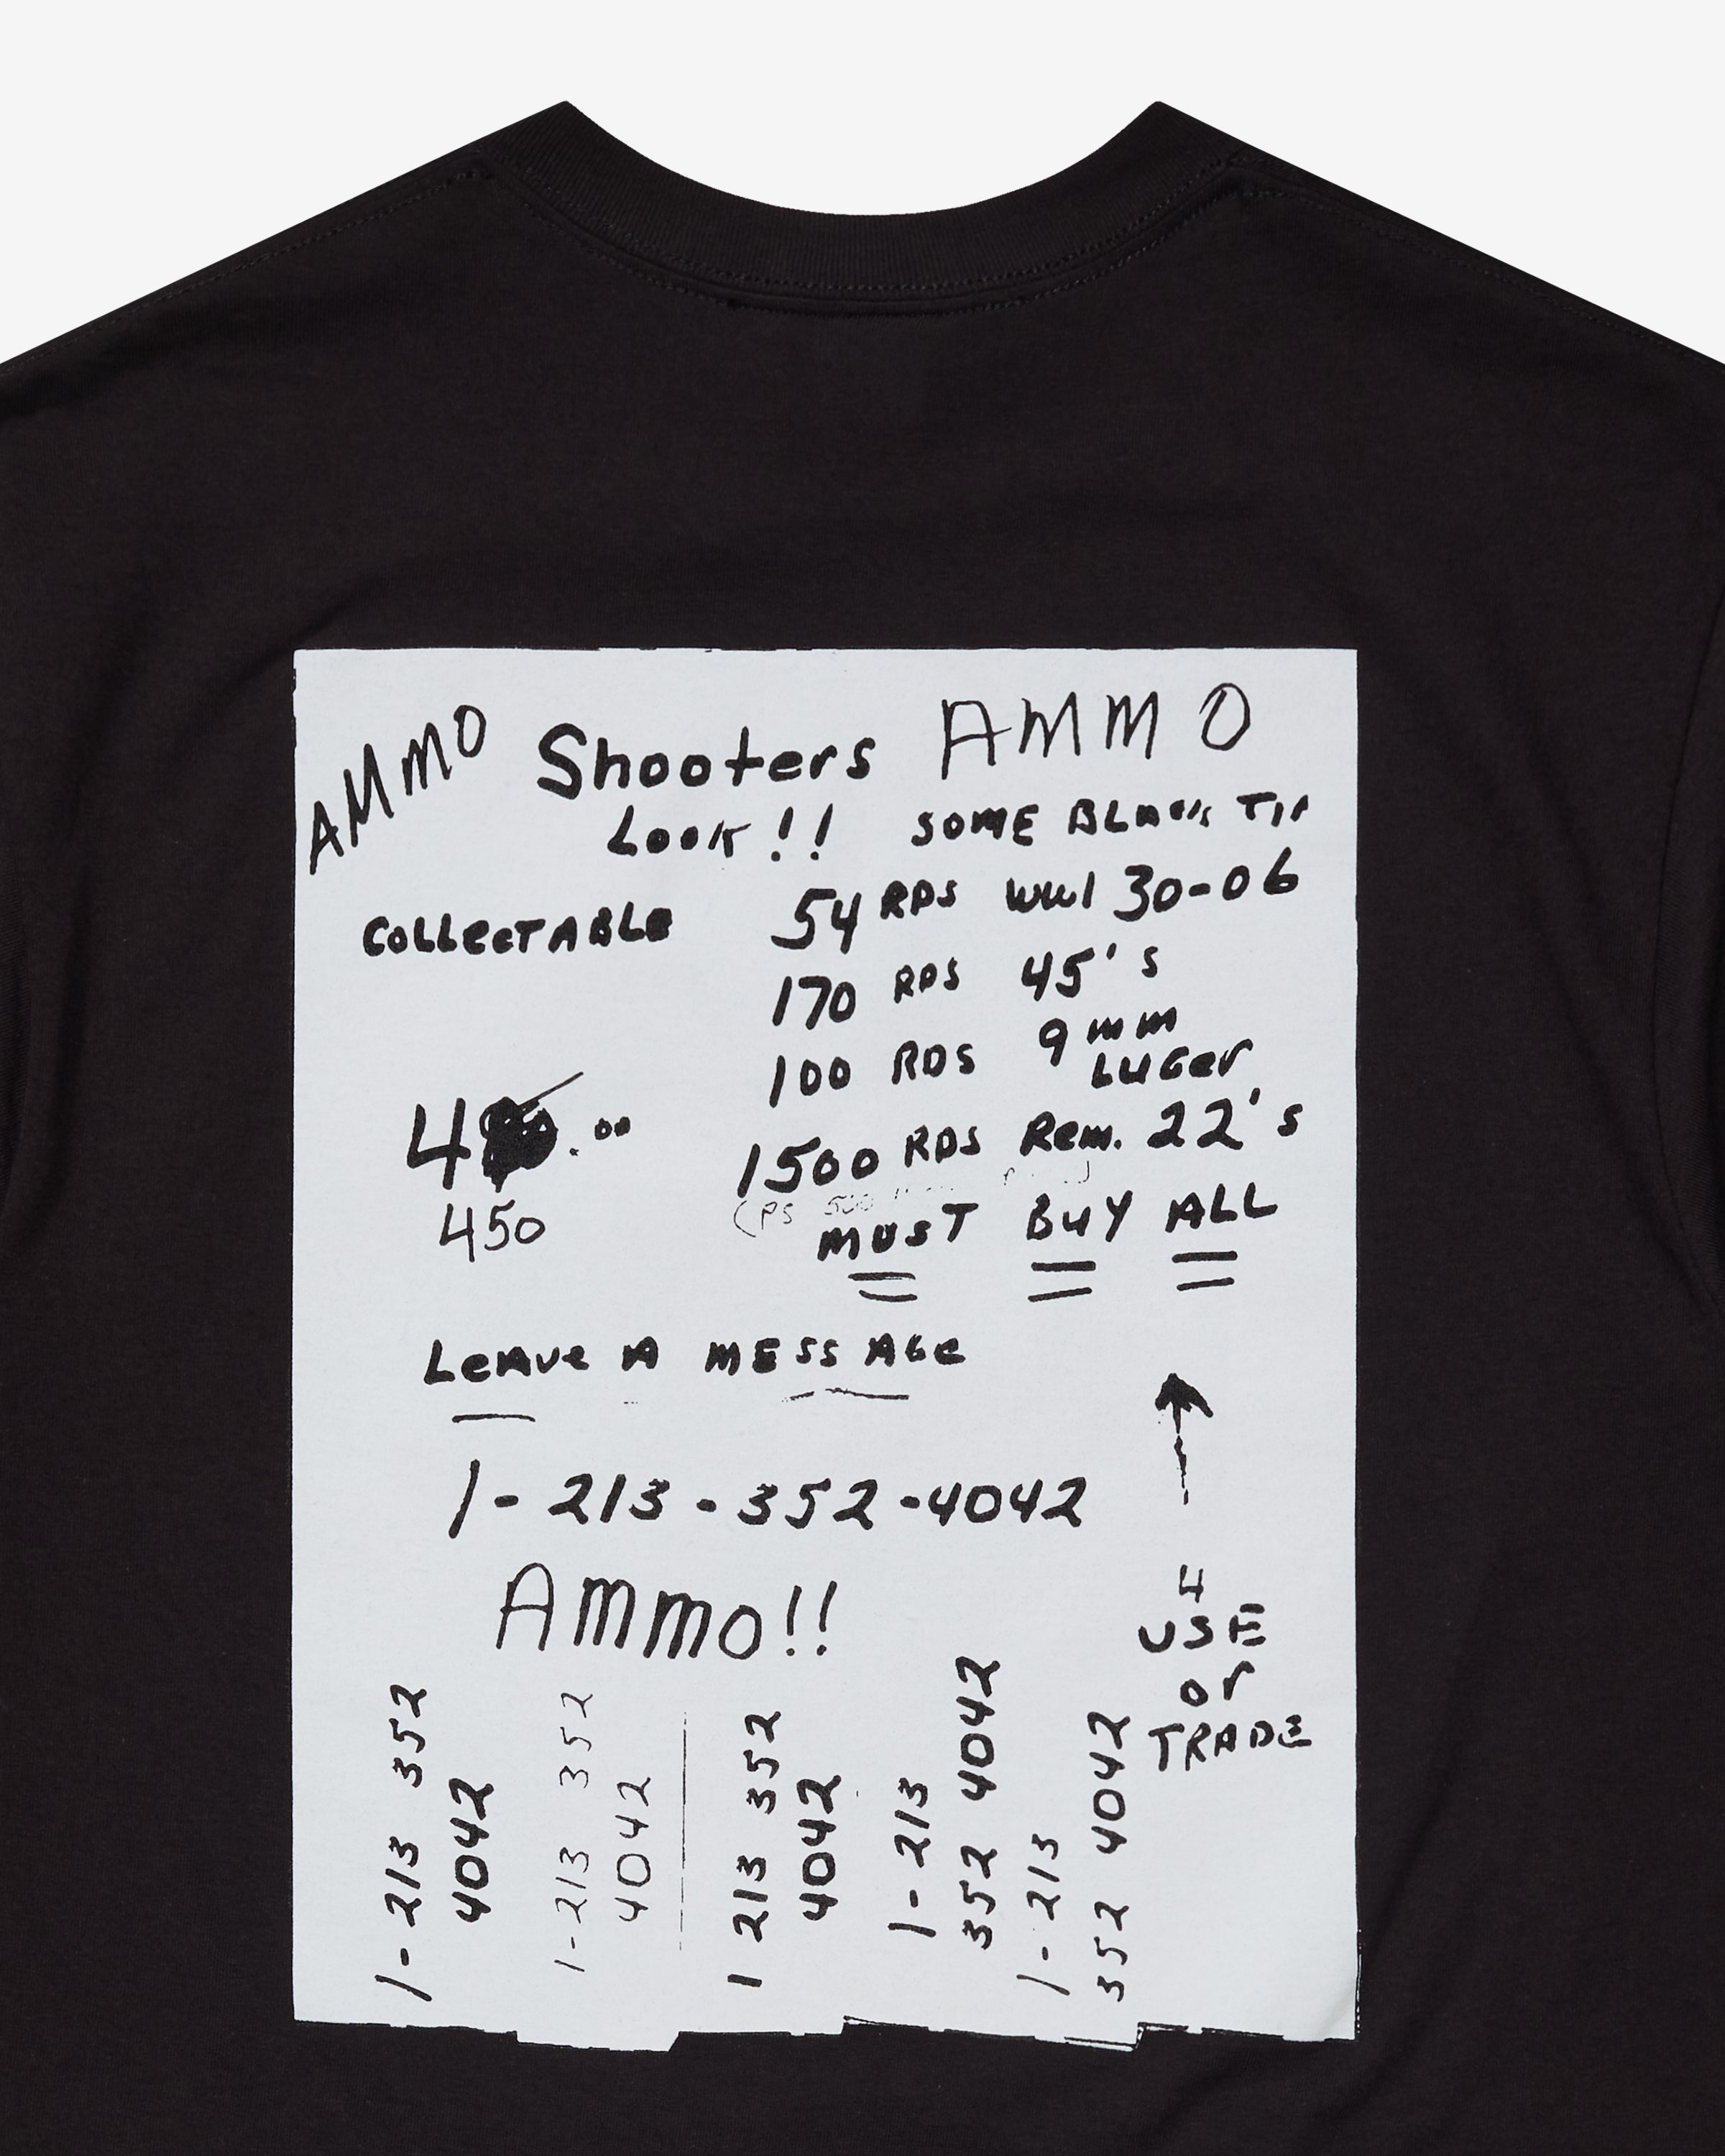 AMMO Shooters AMMO
Look!! SOME BLACK TIP
COLLECTABLE 54 RDS WW1 30-06
170 RDS 45's
100 RDS 9mm
LUGer
4 .00 1500 RDS Rem. 22's
(PS 500
450 MUST BUY ALL
LEAVE A MESSAGE
1-213-352-4042
AMMO!!
4
USE
or
TRADE
1-213 352
4042
1-213 352
4042
1 213 352
4042
1-213
352 4042
1-213
352 4042